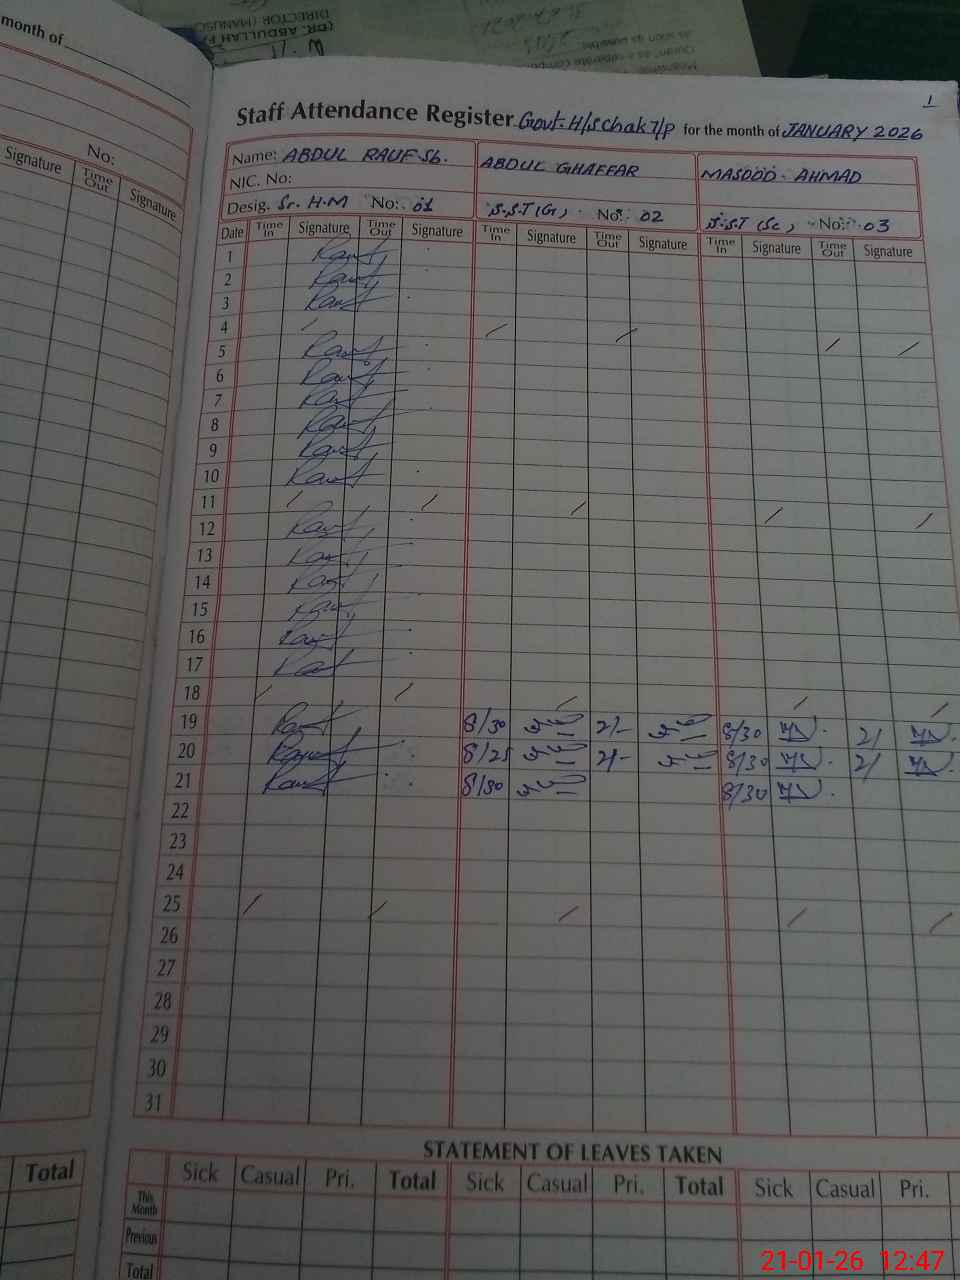 month of
No:
Signature Time Out Signature
Total
(DR. ABDULLAH
DIRECTOR (MANUSC
as soon as possible
1
Staff Attendance Register Govt. H/S Chak 7/P for the month of JANUARY 2026
Name: ABDUL RAUF Sb. ABDUL GHAFFAR MASOOD AHMAD
NIC. No:
Desig. Sr. H.M No: 01 S.S.T (G) No: 02 S.S.T (Sc) No: 03
Date Time In Signature Time Out Signature Time In Signature Time Out Signature Time In Signature Time Out Signature
1 Rauf
2 Rauf
3 Rauf
4
5 Rauf
6 Rauf
7 Rauf
8 Rauf
9 Rauf
10 Rauf
11
12 Rauf
13 Rauf
14 Rauf
15 Rauf
16 Rauf
17 Rauf
18
19 Rauf 8/30 2/- 8/30 2/
20 Rauf 8/25 2/- 8/30 2/
21 Rauf 8/30 8/30
22
23
24
25
26
27
28
29
30
31
STATEMENT OF LEAVES TAKEN
Sick Casual Pri. Total Sick Casual Pri. Total Sick Casual Pri.
This Month
Previous
Total
21-01-26 12:47